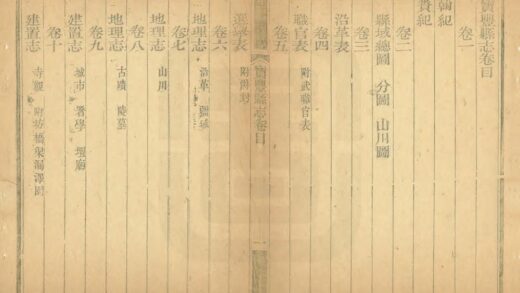 寶豐縣志卷目
卷一
翰紀
紀
卷二
縣域總圖 分圖 山川圖
卷三
沿革表
卷四
職官表 附武職官表
卷五
寶豐縣志卷目 一
選舉表 附封
卷六
地理志 沿革 疆域
卷七
地理志 山川
卷八
地理志 古蹟 陵墓
卷九
建置志 城市 署學 壇廟
卷十
建置志 寺觀 附坊橋梁漏澤園